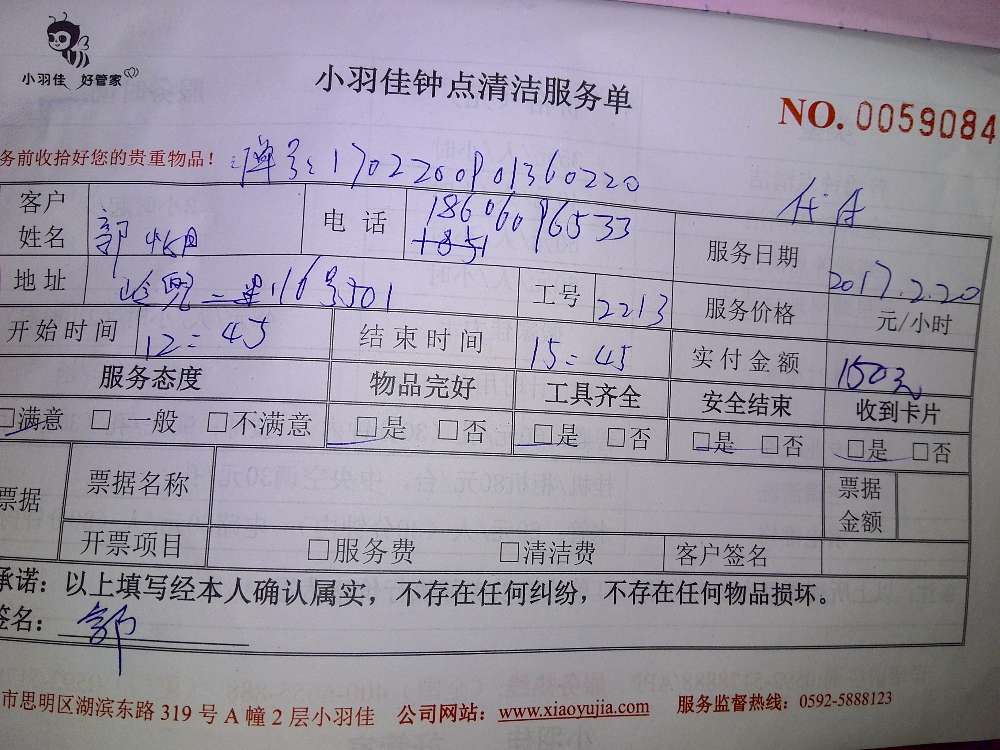 小羽佳 好管家
小羽佳钟点清洁服务单
NO. 0059084
务前收拾好您的贵重物品！
单号：1702200901360220
客户姓名
电话 18606096533
服务日期 2017.2.20
地址 二里116号501
工号 2213
服务价格 元/小时
开始时间 12:45
结束时间 15:45
实付金额 150元
服务态度 物品完好 工具齐全 安全结束 收到卡片
□满意 □一般 □不满意 □是 □否 □是 □否 □是 □否 □是 □否
票据 票据名称 票据金额
开票项目 □服务费 □清洁费 客户签名
承诺：以上填写经本人确认属实，不存在任何纠纷，不存在任何物品损坏。
签名：
市思明区湖滨东路 319 号 A 幢 2 层小羽佳 公司网站：www.xiaoyujia.com 服务监督热线：0592-5888123